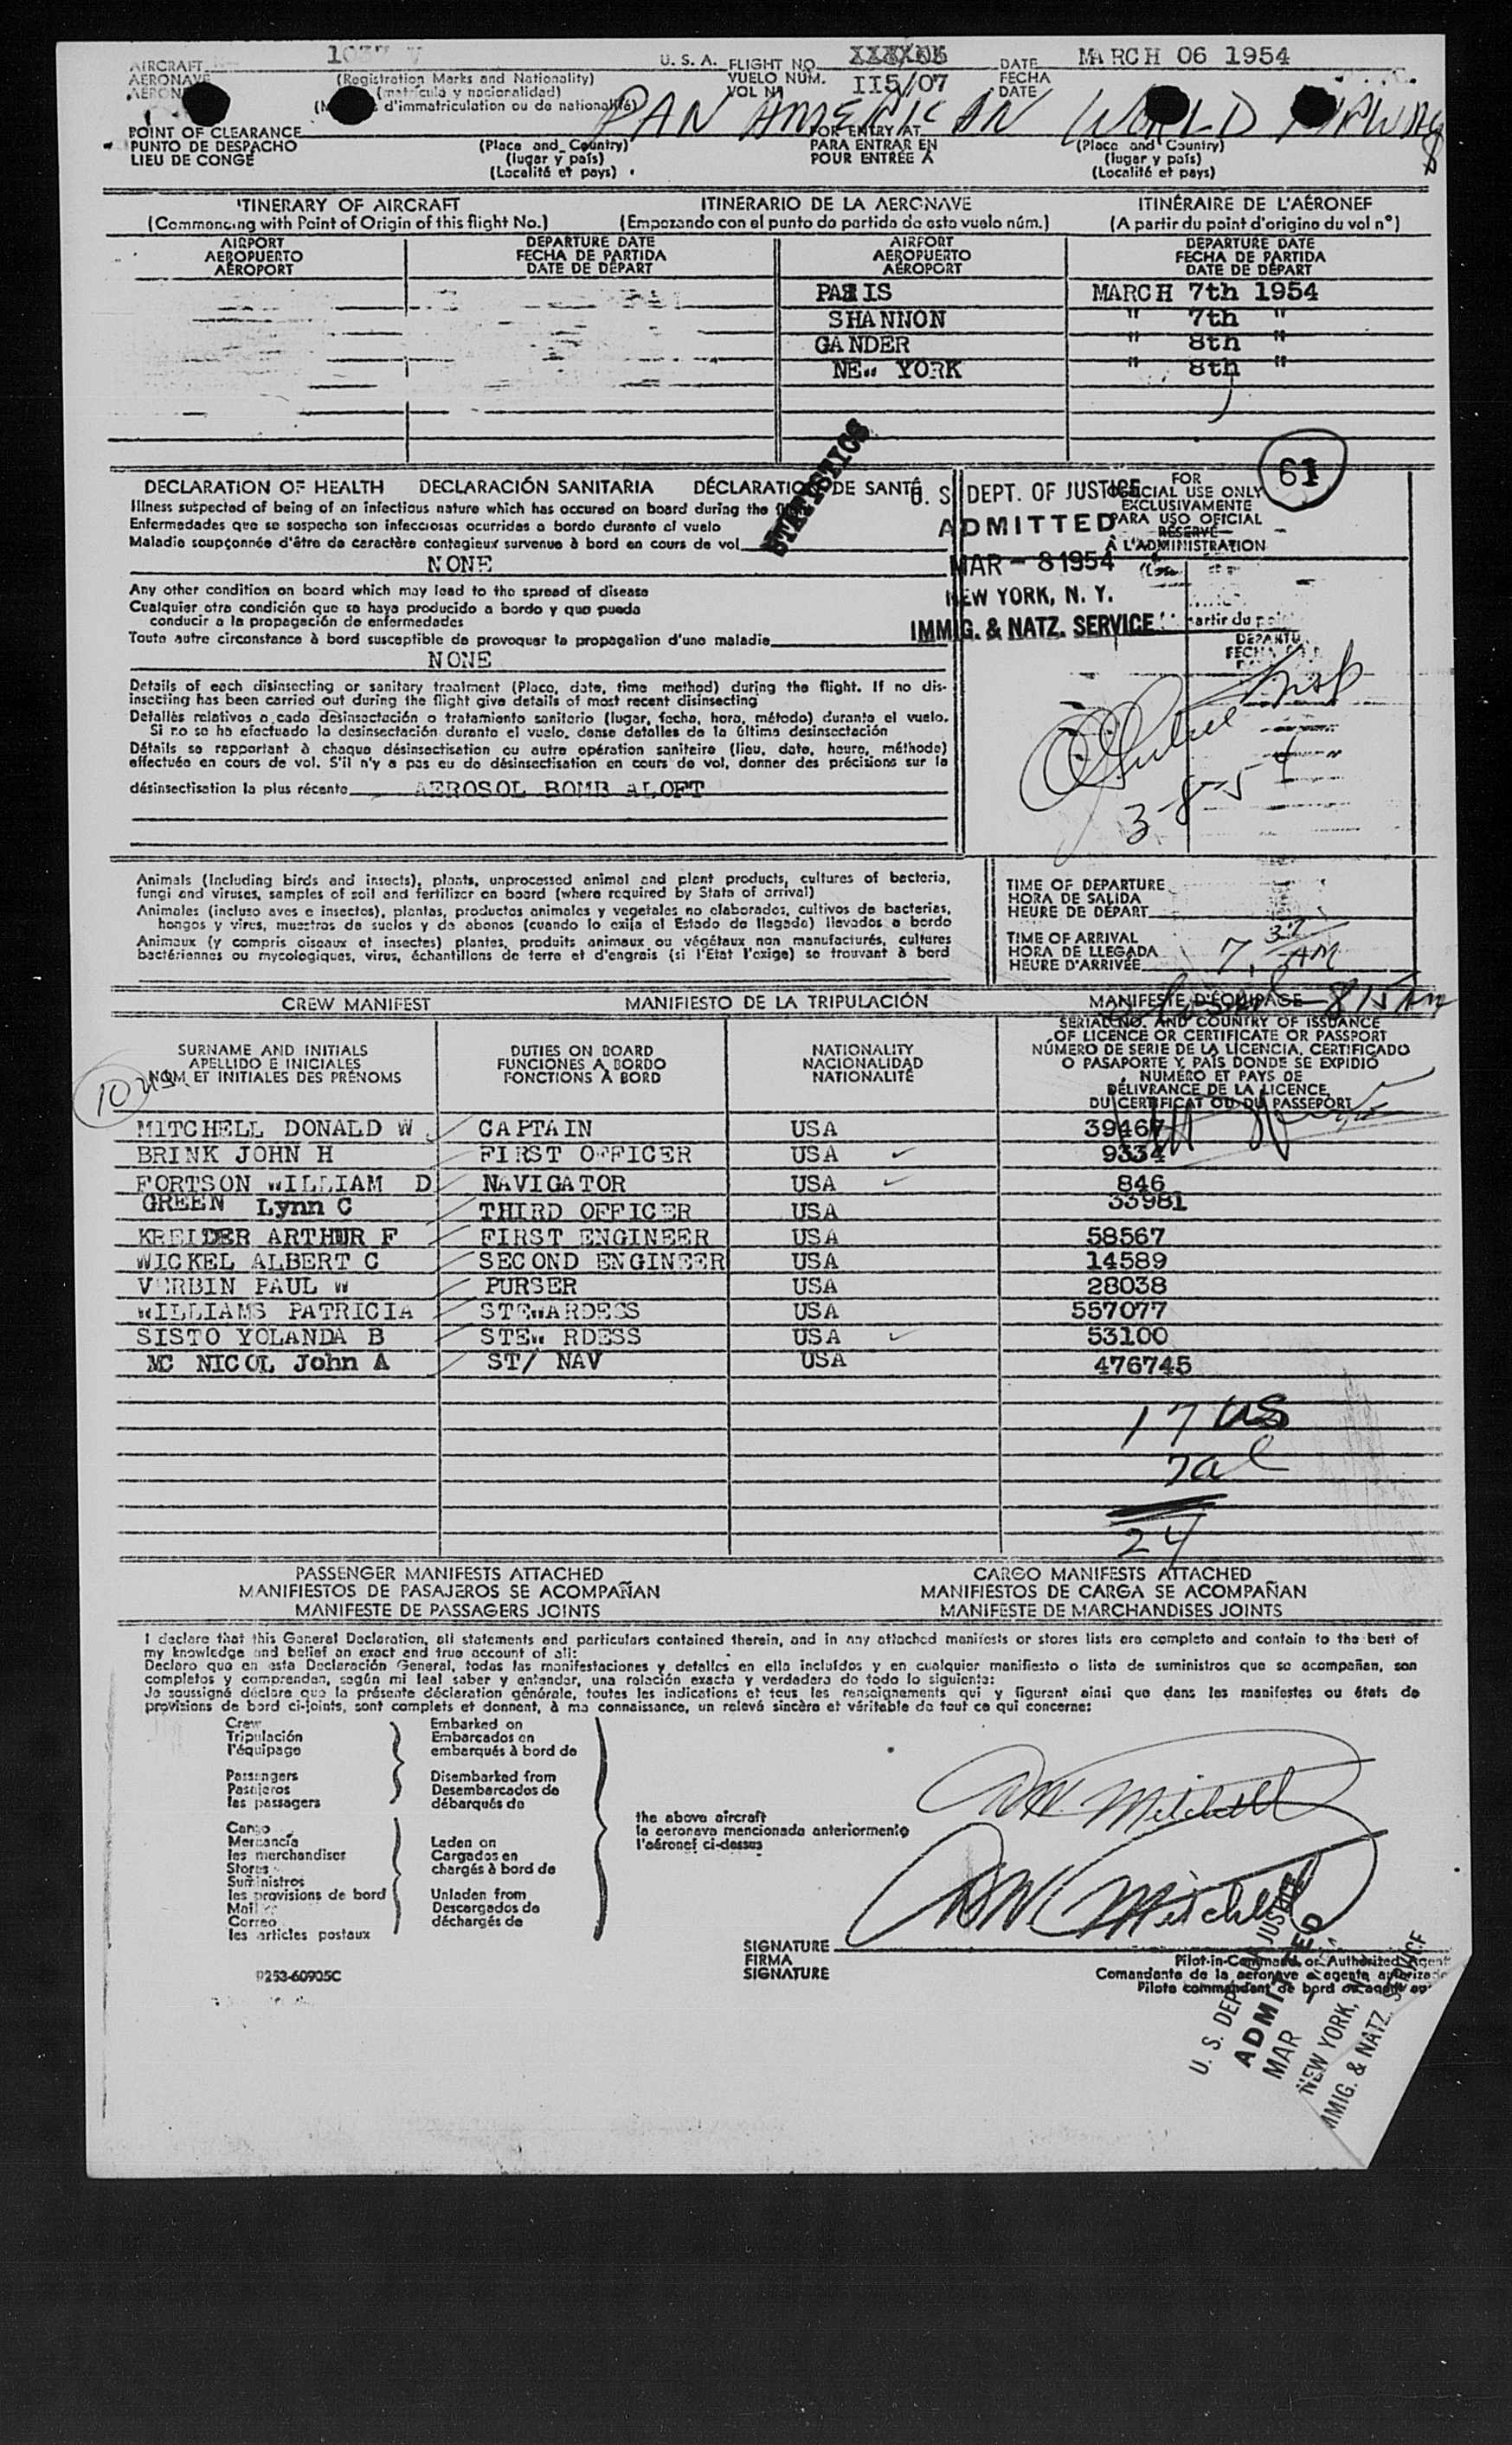 AIRCRAFT U. S. A. FLIGHT NO. DATE MARCH 06 1954
AERONAVE (Registration Marks and Nationality) VUELO NUM. 115/07 FECHA
(matrícula y nacionalidad) VOL Nº DATE
d'immatriculation ou de nationalité)
PAN AMERICAN WORLD AIRWAYS
POINT OF CLEARANCE (Place and Country) FOR ENTRY AT (Place and Country)
PUNTO DE DESPACHO (lugar y país) PARA ENTRAR EN (lugar y país)
LIEU DE CONGÉ (Localité et pays) POUR ENTRÉE À (Localité et pays)
ITINERARY OF AIRCRAFT ITINERARIO DE LA AERONAVE ITINÉRAIRE DE L'AÉRONEF
(Commencing with Point of Origin of this flight No.) (Empezando con el punto de partida de este vuelo núm.) (A partir du point d'origine du vol nº)
AIRPORT DEPARTURE DATE AIRPORT DEPARTURE DATE
AEROPUERTO FECHA DE PARTIDA AEROPUERTO FECHA DE PARTIDA
AÉROPORT DATE DE DÉPART AÉROPORT DATE DE DÉPART
PARIS MARCH 7th 1954
SHANNON " 7th "
GANDER " 8th "
NEW YORK " 8th "
STATISTICS
61
DECLARATION OF HEALTH DECLARACIÓN SANITARIA DÉCLARATION DE SANTÉ
Illness suspected of being of an infectious nature which has occured on board during the
Enfermedades que se sospecha son infecciosas ocurridas a bordo durante el vuelo
Maladie soupçonnée d'être de caractère contagieux survenue à bord en cours de vol
NONE
Any other condition on board which may lead to the spread of disease
Cualquier otra condición que se haya producido a bordo y que pueda
conducir a la propagación de enfermedades
Toute autre circonstance à bord susceptible de provoquer la propagation d'une maladie
NONE
Details of each disinsecting or sanitary treatment (Place, date, time method) during the flight. If no dis-
insecting has been carried out during the flight give details of most recent disinsecting
Detalles relativos a cada desinsectación o tratamiento sanitario (lugar, fecha, hora, método) durante el vuelo.
Si no se ha efectuado la desinsectación durante el vuelo, dense detalles de la última desinsectación
Détails se rapportant à chaque désinsectisation ou autre opération sanitaire (lieu, date, heure, méthode)
effectuée en cours de vol. S'il n'y a pas eu de désinsectisation en cours de vol, donner des précisions sur la
désinsectisation la plus récente AEROSOL BOMB ALOFT
FOR
OFFICIAL USE ONLY
EXCLUSIVEMENTE
PARA USO OFICIAL
RÉSERVÉ
À L'ADMINISTRATION
U. S. DEPT. OF JUSTICE
ADMITTED
MAR - 8 1954
NEW YORK, N. Y.
IMMIG. & NATZ. SERVICE
3-8-54
Animals (Including birds and insects), plants, unprocessed animal and plant products, cultures of bacteria,
fungi and viruses, samples of soil and fertilizer on board (where required by State of arrival)
Animales (incluso aves e insectos), plantas, productos animales y vegetales no elaborados, cultivos de bacterias,
hongos y virus, muestras de suelos y de abonos (cuando lo exija el Estado de llegada) llevados a bordo
Animaux (y compris oiseaux et insectes) plantes, produits animaux ou végétaux non manufacturés, cultures
bactériennes ou mycologiques, virus, échantillons de terre et d'engrais (si l'Etat l'exige) se trouvant à bord
TIME OF DEPARTURE
HORA DE SALIDA
HEURE DE DÉPART
TIME OF ARRIVAL
HORA DE LLEGADA 7 37 AM
HEURE D'ARRIVÉE
CREW MANIFEST MANIFIESTO DE LA TRIPULACIÓN MANIFESTE D'ÉQUIPAGE 815 AM
SURNAME AND INITIALS DUTIES ON BOARD NATIONALITY SERIAL NO. AND COUNTRY OF ISSUANCE
APELLIDO E INICIALES FUNCIONES A BORDO NACIONALIDAD OF LICENCE OR CERTIFICATE OR PASSPORT
NOM ET INITIALES DES PRÉNOMS FONCTIONS À BORD NATIONALITÉ NÚMERO DE SERIE DE LA LICENCIA, CERTIFICADO
O PASAPORTE Y PAÍS DONDE SE EXPIDIÓ
NUMÉRO ET PAYS DE
DÉLIVRANCE DE LA LICENCE,
DU CERTIFICAT OU DU PASSEPORT
10 US
MITCHELL DONALD W CAPTAIN USA 39467
BRINK JOHN H FIRST OFFICER USA 9334
FORTSON WILLIAM D NAVIGATOR USA 846
GREEN Lynn C THIRD OFFICER USA 33981
KREIDER ARTHUR F FIRST ENGINEER USA 58567
WICKEL ALBERT C SECOND ENGINEER USA 14589
VERBIN PAUL W PURSER USA 28038
WILLIAMS PATRICIA STEWARDESS USA 557077
SISTO YOLANDA B STEW RDESS USA 53100
MC NICOL John A ST/ NAV USA 476745
17 US
7 al
24
PASSENGER MANIFESTS ATTACHED CARGO MANIFESTS ATTACHED
MANIFIESTOS DE PASAJEROS SE ACOMPAÑAN MANIFIESTOS DE CARGA SE ACOMPAÑAN
MANIFESTE DE PASSAGERS JOINTS MANIFESTE DE MARCHANDISES JOINTS
I declare that this General Declaration, all statements and particulars contained therein, and in any attached manifests or stores lists are complete and contain to the best of
my knowledge and belief an exact and true account of all:
Declaro que en esta Declaración General, todas las manifestaciones y detalles en ella incluídos y en cualquier manifiesto o lista de suministros que se acompañan, son
completos y comprenden, según mi leal saber y entender, una relación exacta y verdadera de todo lo siguiente:
Je soussigné déclare que la présente déclaration générale, toutes les indications et tous les renseignements qui y figurent ainsi que dans les manifestes ou états de
provisions de bord ci-joints, sont complets et donnent, à ma connaissance, un relevé sincère et véritable de tout ce qui concerne:
Crew Embarked on
Tripulación Embarcados en
l'équipage embarqués à bord de
Passengers Disembarked from
Pasajeros Desembarcados de
les passagers débarqués de
the above aircraft
la aeronave mencionada anteriormente
l'aéronef ci-dessus
Cargo
Mercancía Laden on
les marchandises Cargados en
Stores chargés à bord de
Suministros
les provisions de bord Unladen from
Mail Descargados de
Correo déchargés de
les articles postaux
DW Mitchell
DW Mitchell
SIGNATURE
FIRMA
SIGNATURE
Pilot-in-Command or Authorized Agent
Comandante de la aeronave o agente
Pilote commandant de bord ou agent
P253-60905C
U. S. DEPT. JUSTICE
ADMITTED
MAR
NEW YORK, N
IMMIG. & NATZ. SERVICE